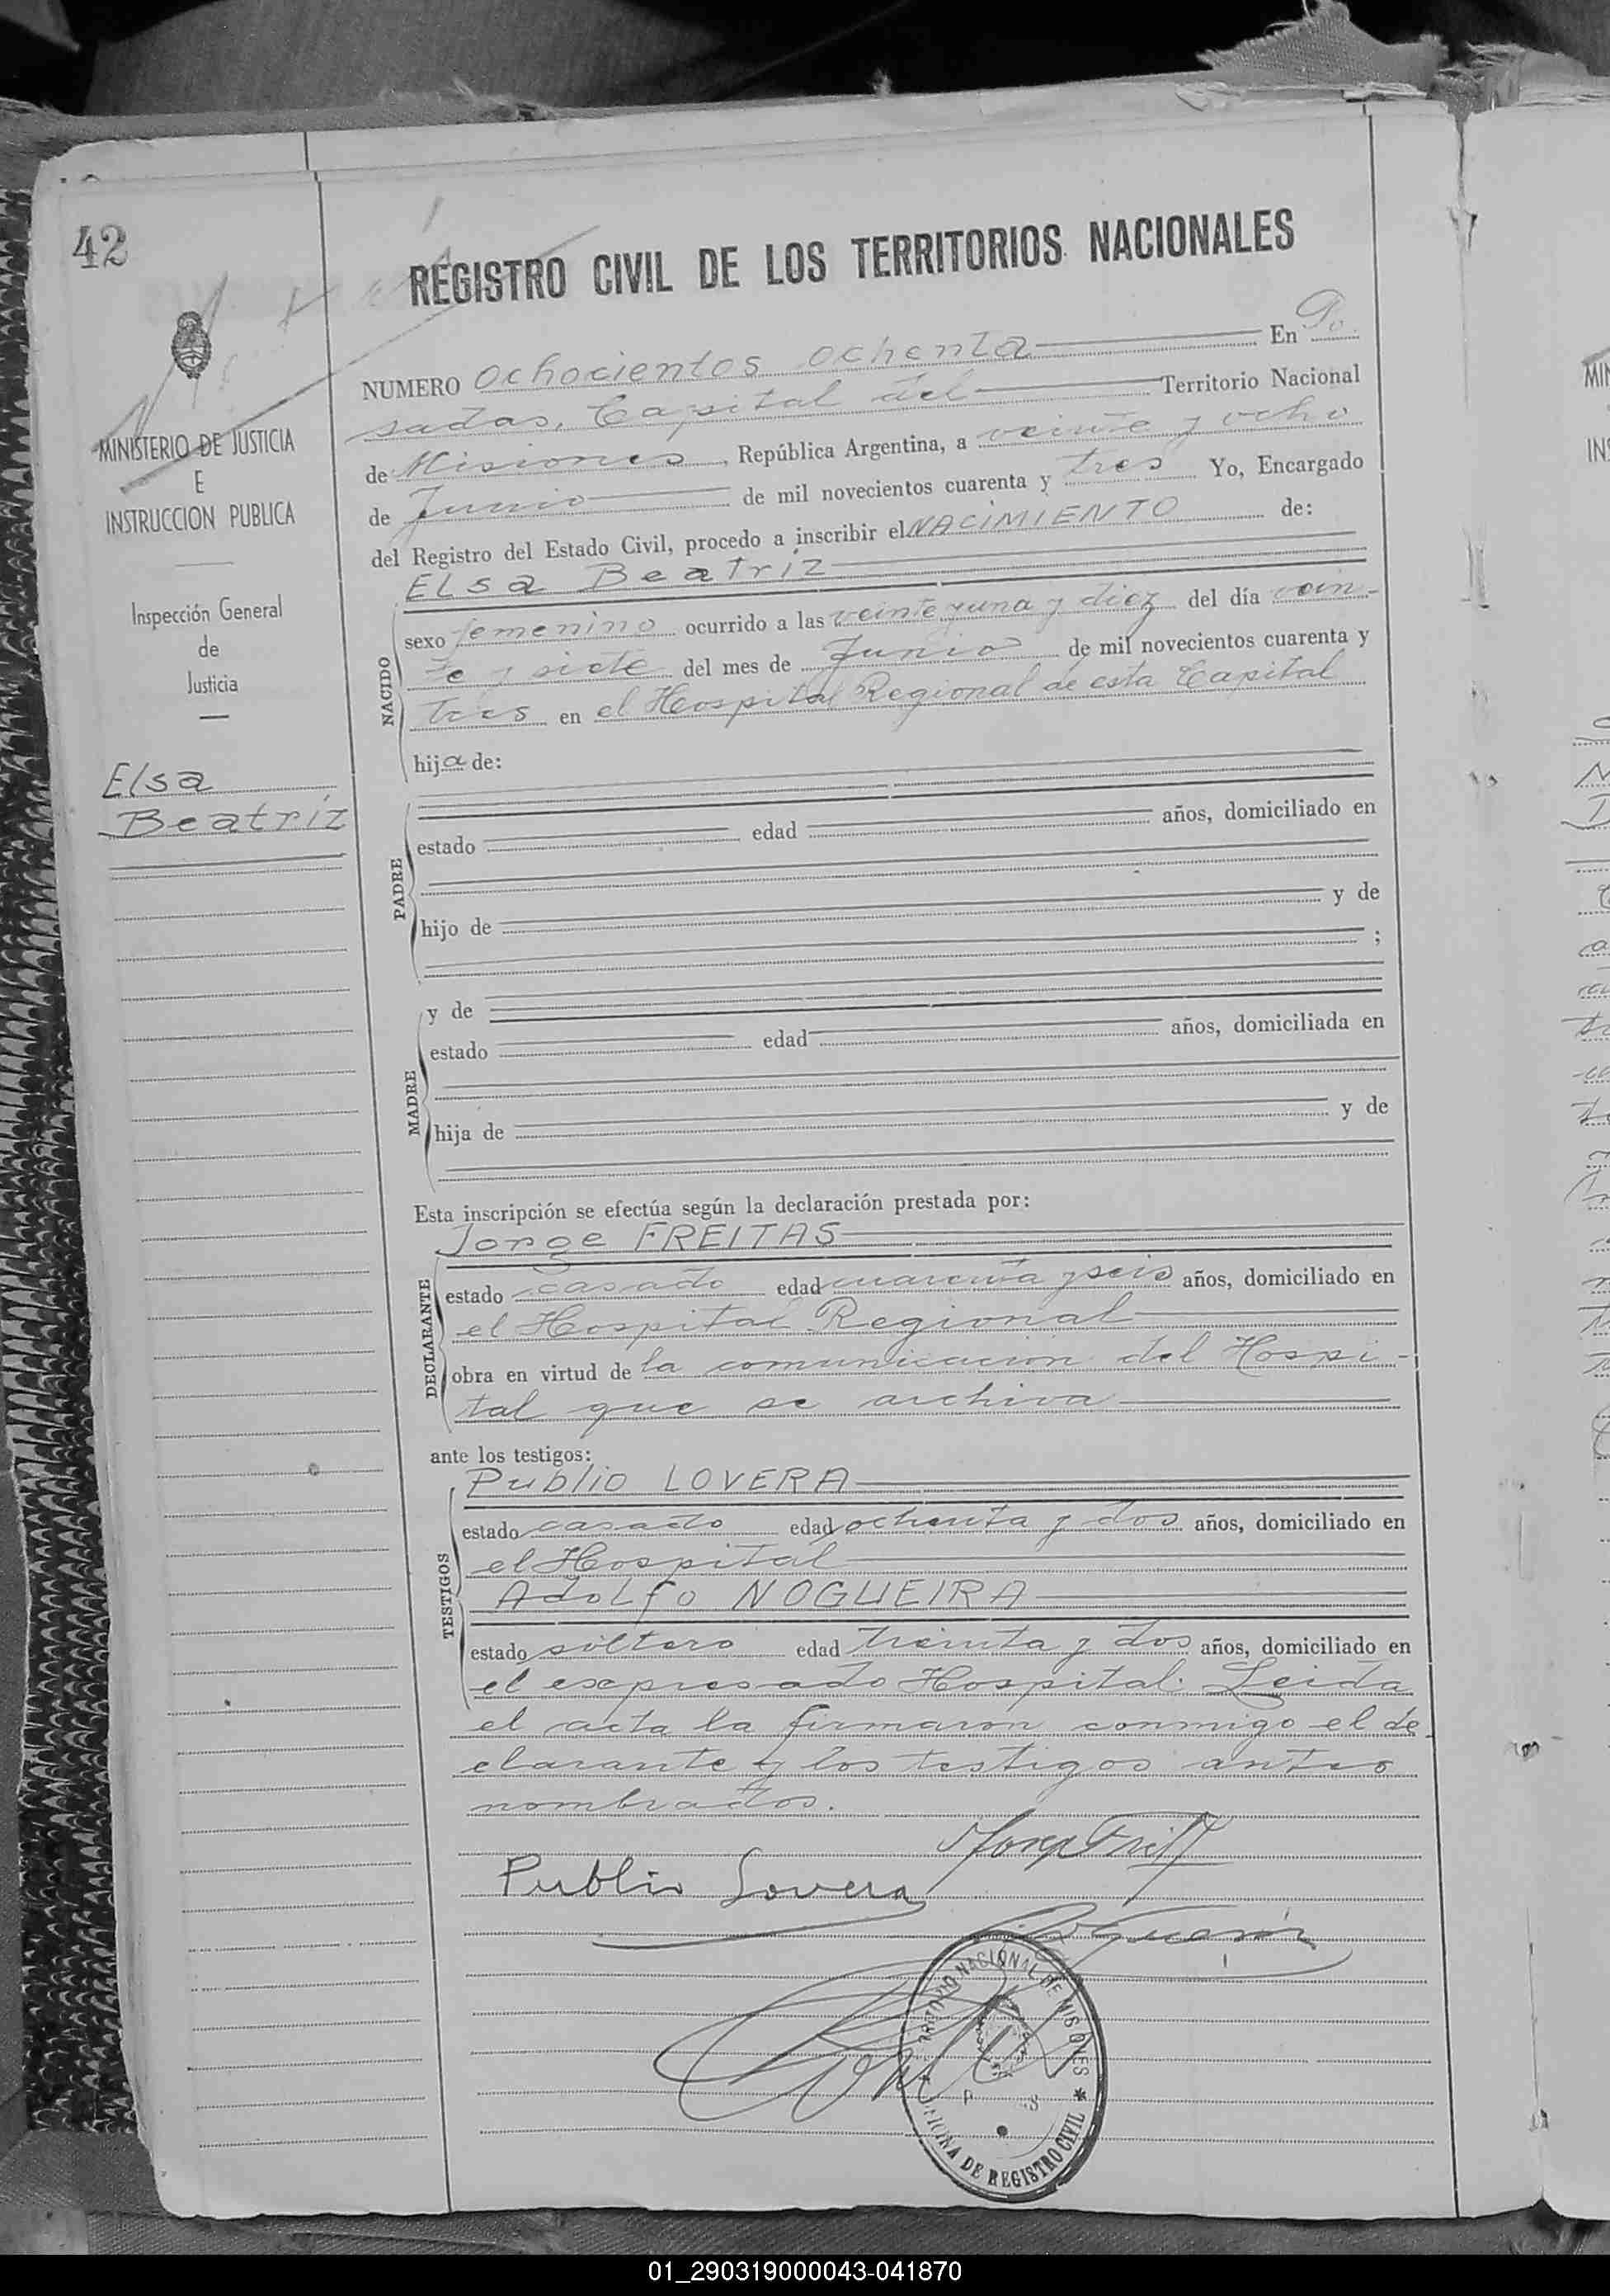 42
REGISTRO CIVIL DE LOS TERRITORIOS NACIONALES
MINISTERIO DE JUSTICIA
E
INSTRUCCION PUBLICA
Inspección General
de
Justicia
Elsa
Beatriz
NUMERO Ochocientos ochenta En Po
sadas, Capital del Territorio Nacional
de Misiones, República Argentina, a veinte y ocho
de Junio de mil novecientos cuarenta y tres Yo, Encargado
del Registro del Estado Civil, procedo a inscribir el NACIMIENTO de:
NACIDO
ELsa Beatriz
sexo femenino ocurrido a las veinte y una y diez del día vein-
te y siete del mes de Junio de mil novecientos cuarenta y
tres en el Hospital Regional de esta Capital
hija de:
PADRE
estado edad años, domiciliado en
hijo de y de
;
MADRE
y de
estado edad años, domiciliada en
hija de y de
Esta inscripción se efectúa según la declaración prestada por:
DECLARANTE
Jorge FREITAS
estado casado edad cuarenta y seis años, domiciliado en
el Hospital Regional
obra en virtud de la comunicación del Hospi-
tal que se archiva
ante los testigos:
TESTIGOS
Publio LOVERA
estado casado edad ochenta y dos años, domiciliado en
el Hospital
Adolfo NOGUEIRA
estado soltero edad treinta y dos años, domiciliado en
el expresado Hospital. Leida
el acta la firmaron conmigo el de
clarante y los testigos antes
nombrados.
Publio Lovera
TERRITORIO NACIONAL DE MISIONES
OFICINA DE REGISTRO CIVIL
01_290319000043-041870